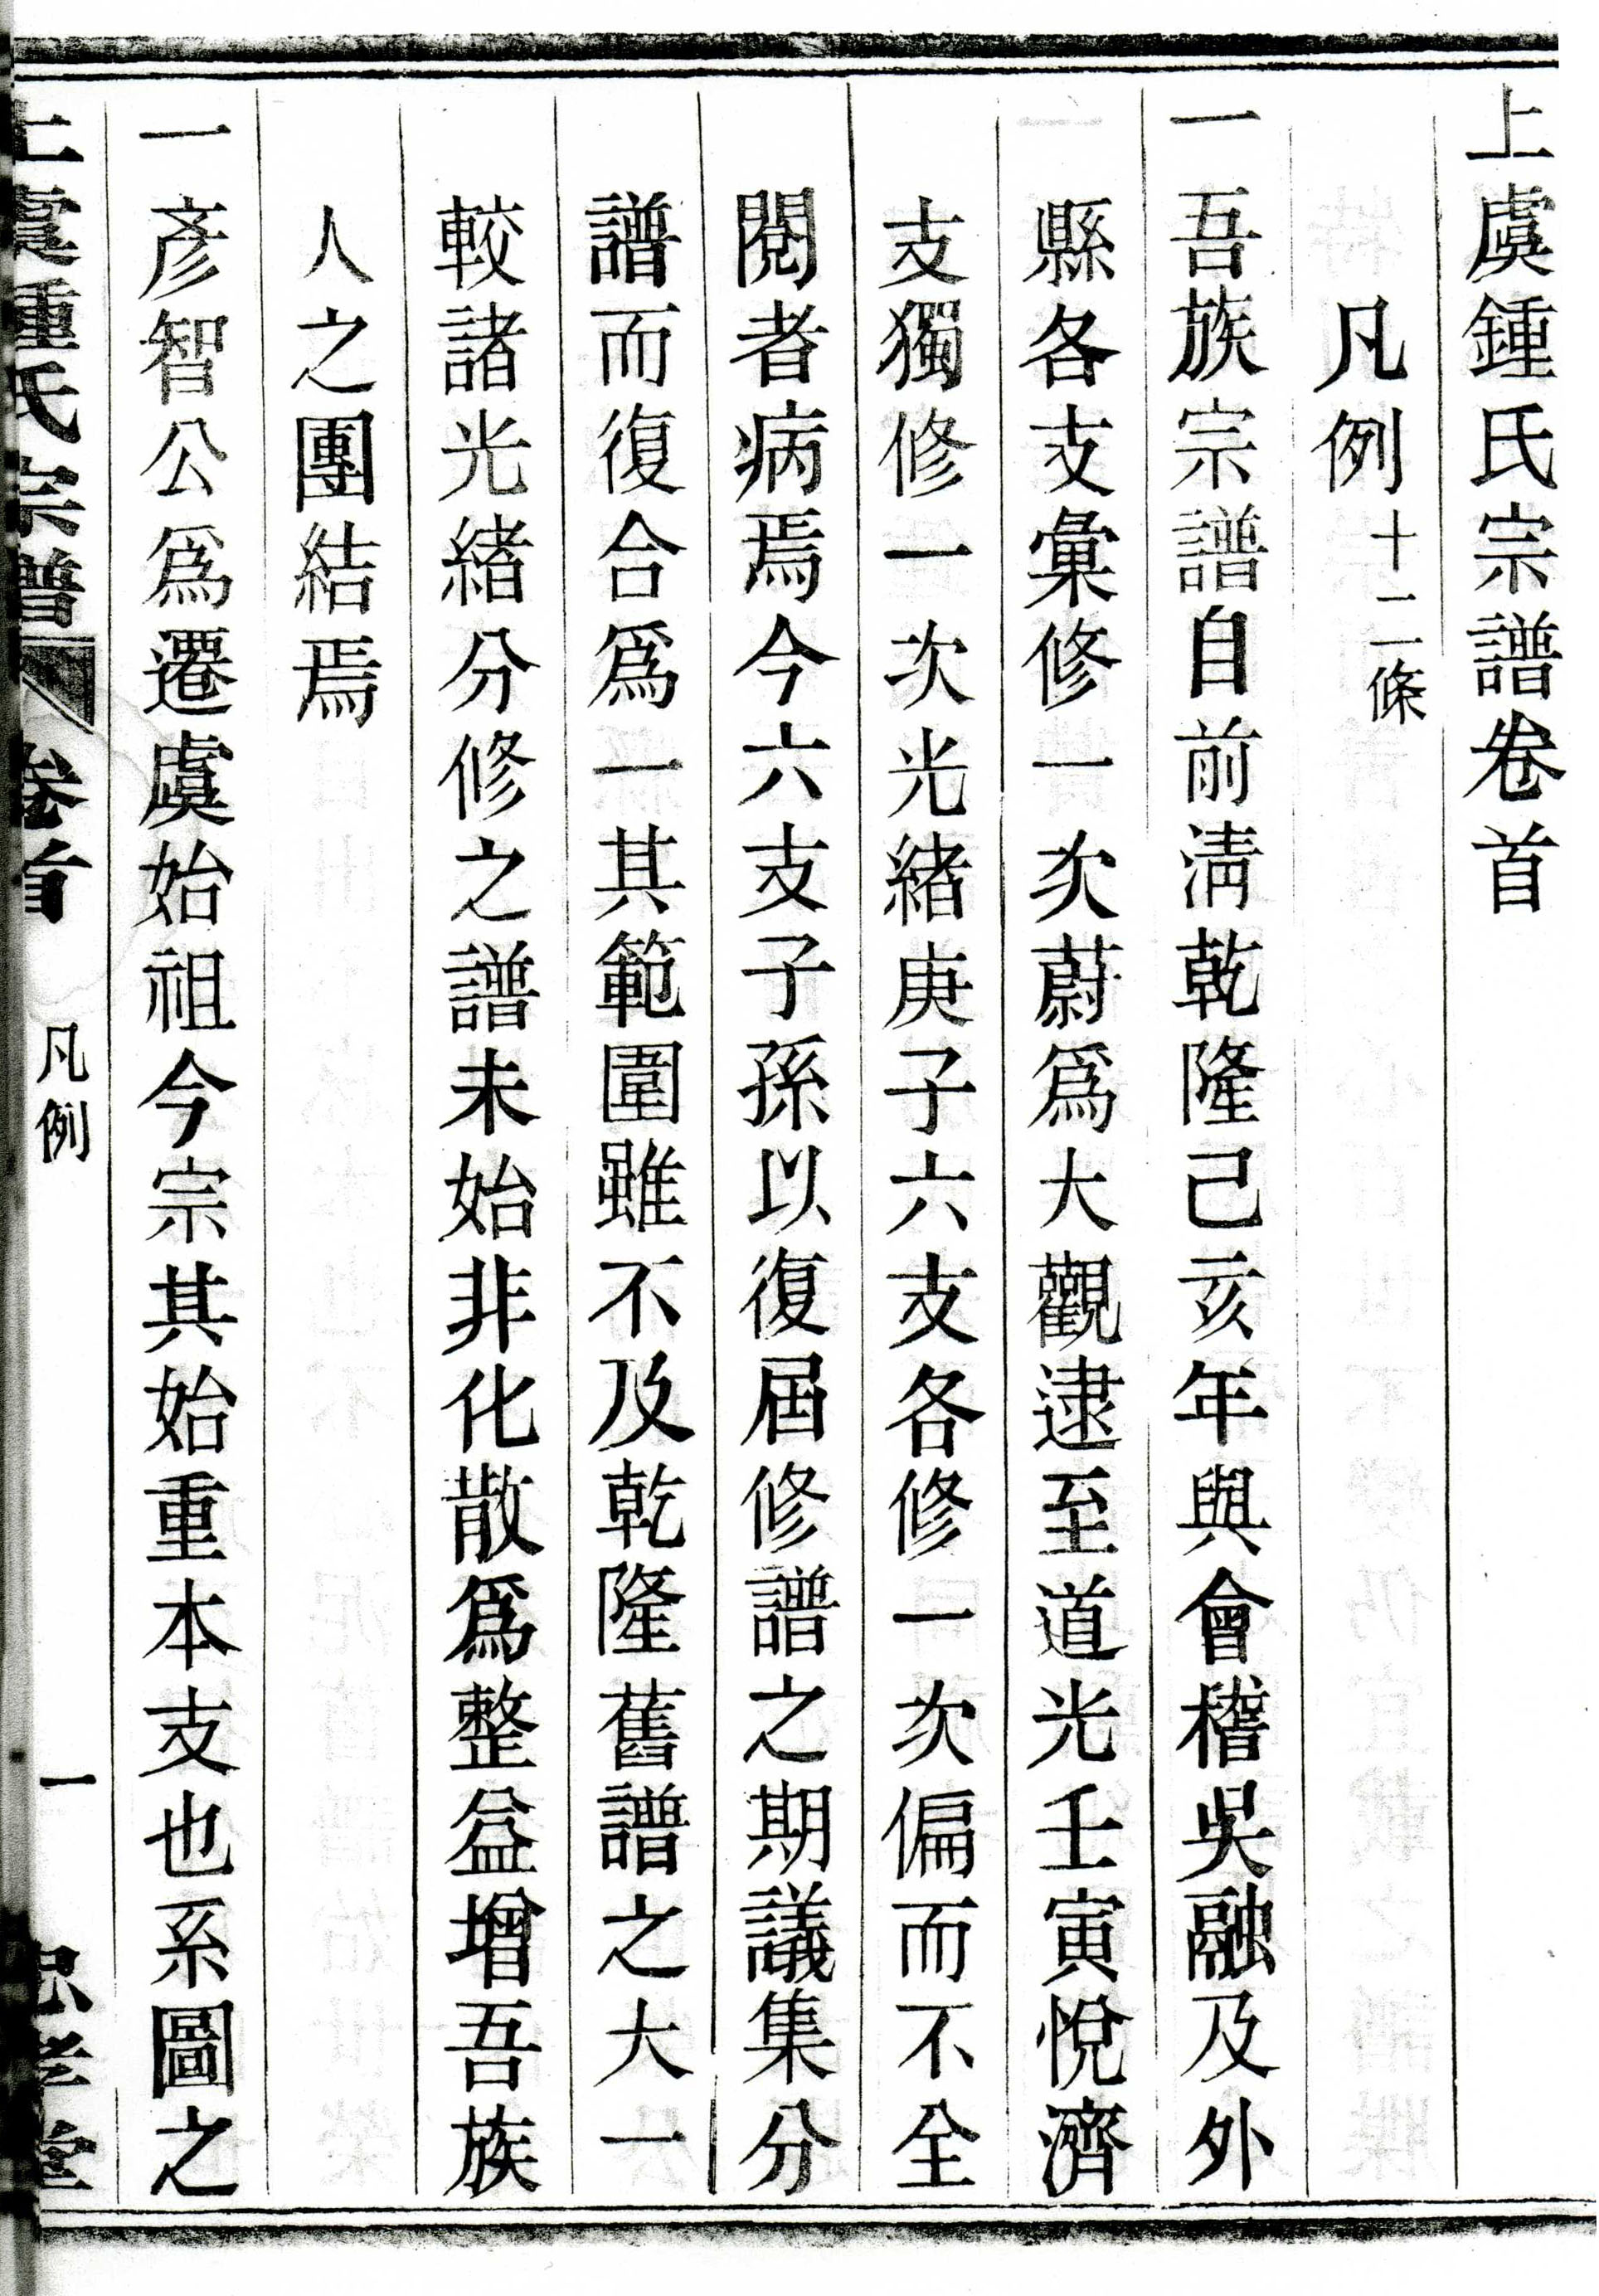 上虞鍾氏宗譜卷首
凡例十二條
一吾族宗譜自前淸乾隆己亥年與會稽吳融及外
縣各支彙修一次蔚爲大觀逮至道光壬寅悅濟
支獨修一次光緒庚子六支各修一次偏而不全
閱者病焉今六支子孫以復屆修譜之期議集分
譜而復合爲一其範圍雖不及乾隆舊譜之大一
較諸光緒分修之譜未始非化散爲整益增吾族
人之團結焉
一彥智公爲遷虞始祖今宗其始重本支也系圖之
上虞鍾氏宗譜 卷首 凡例 一 忠孝堂